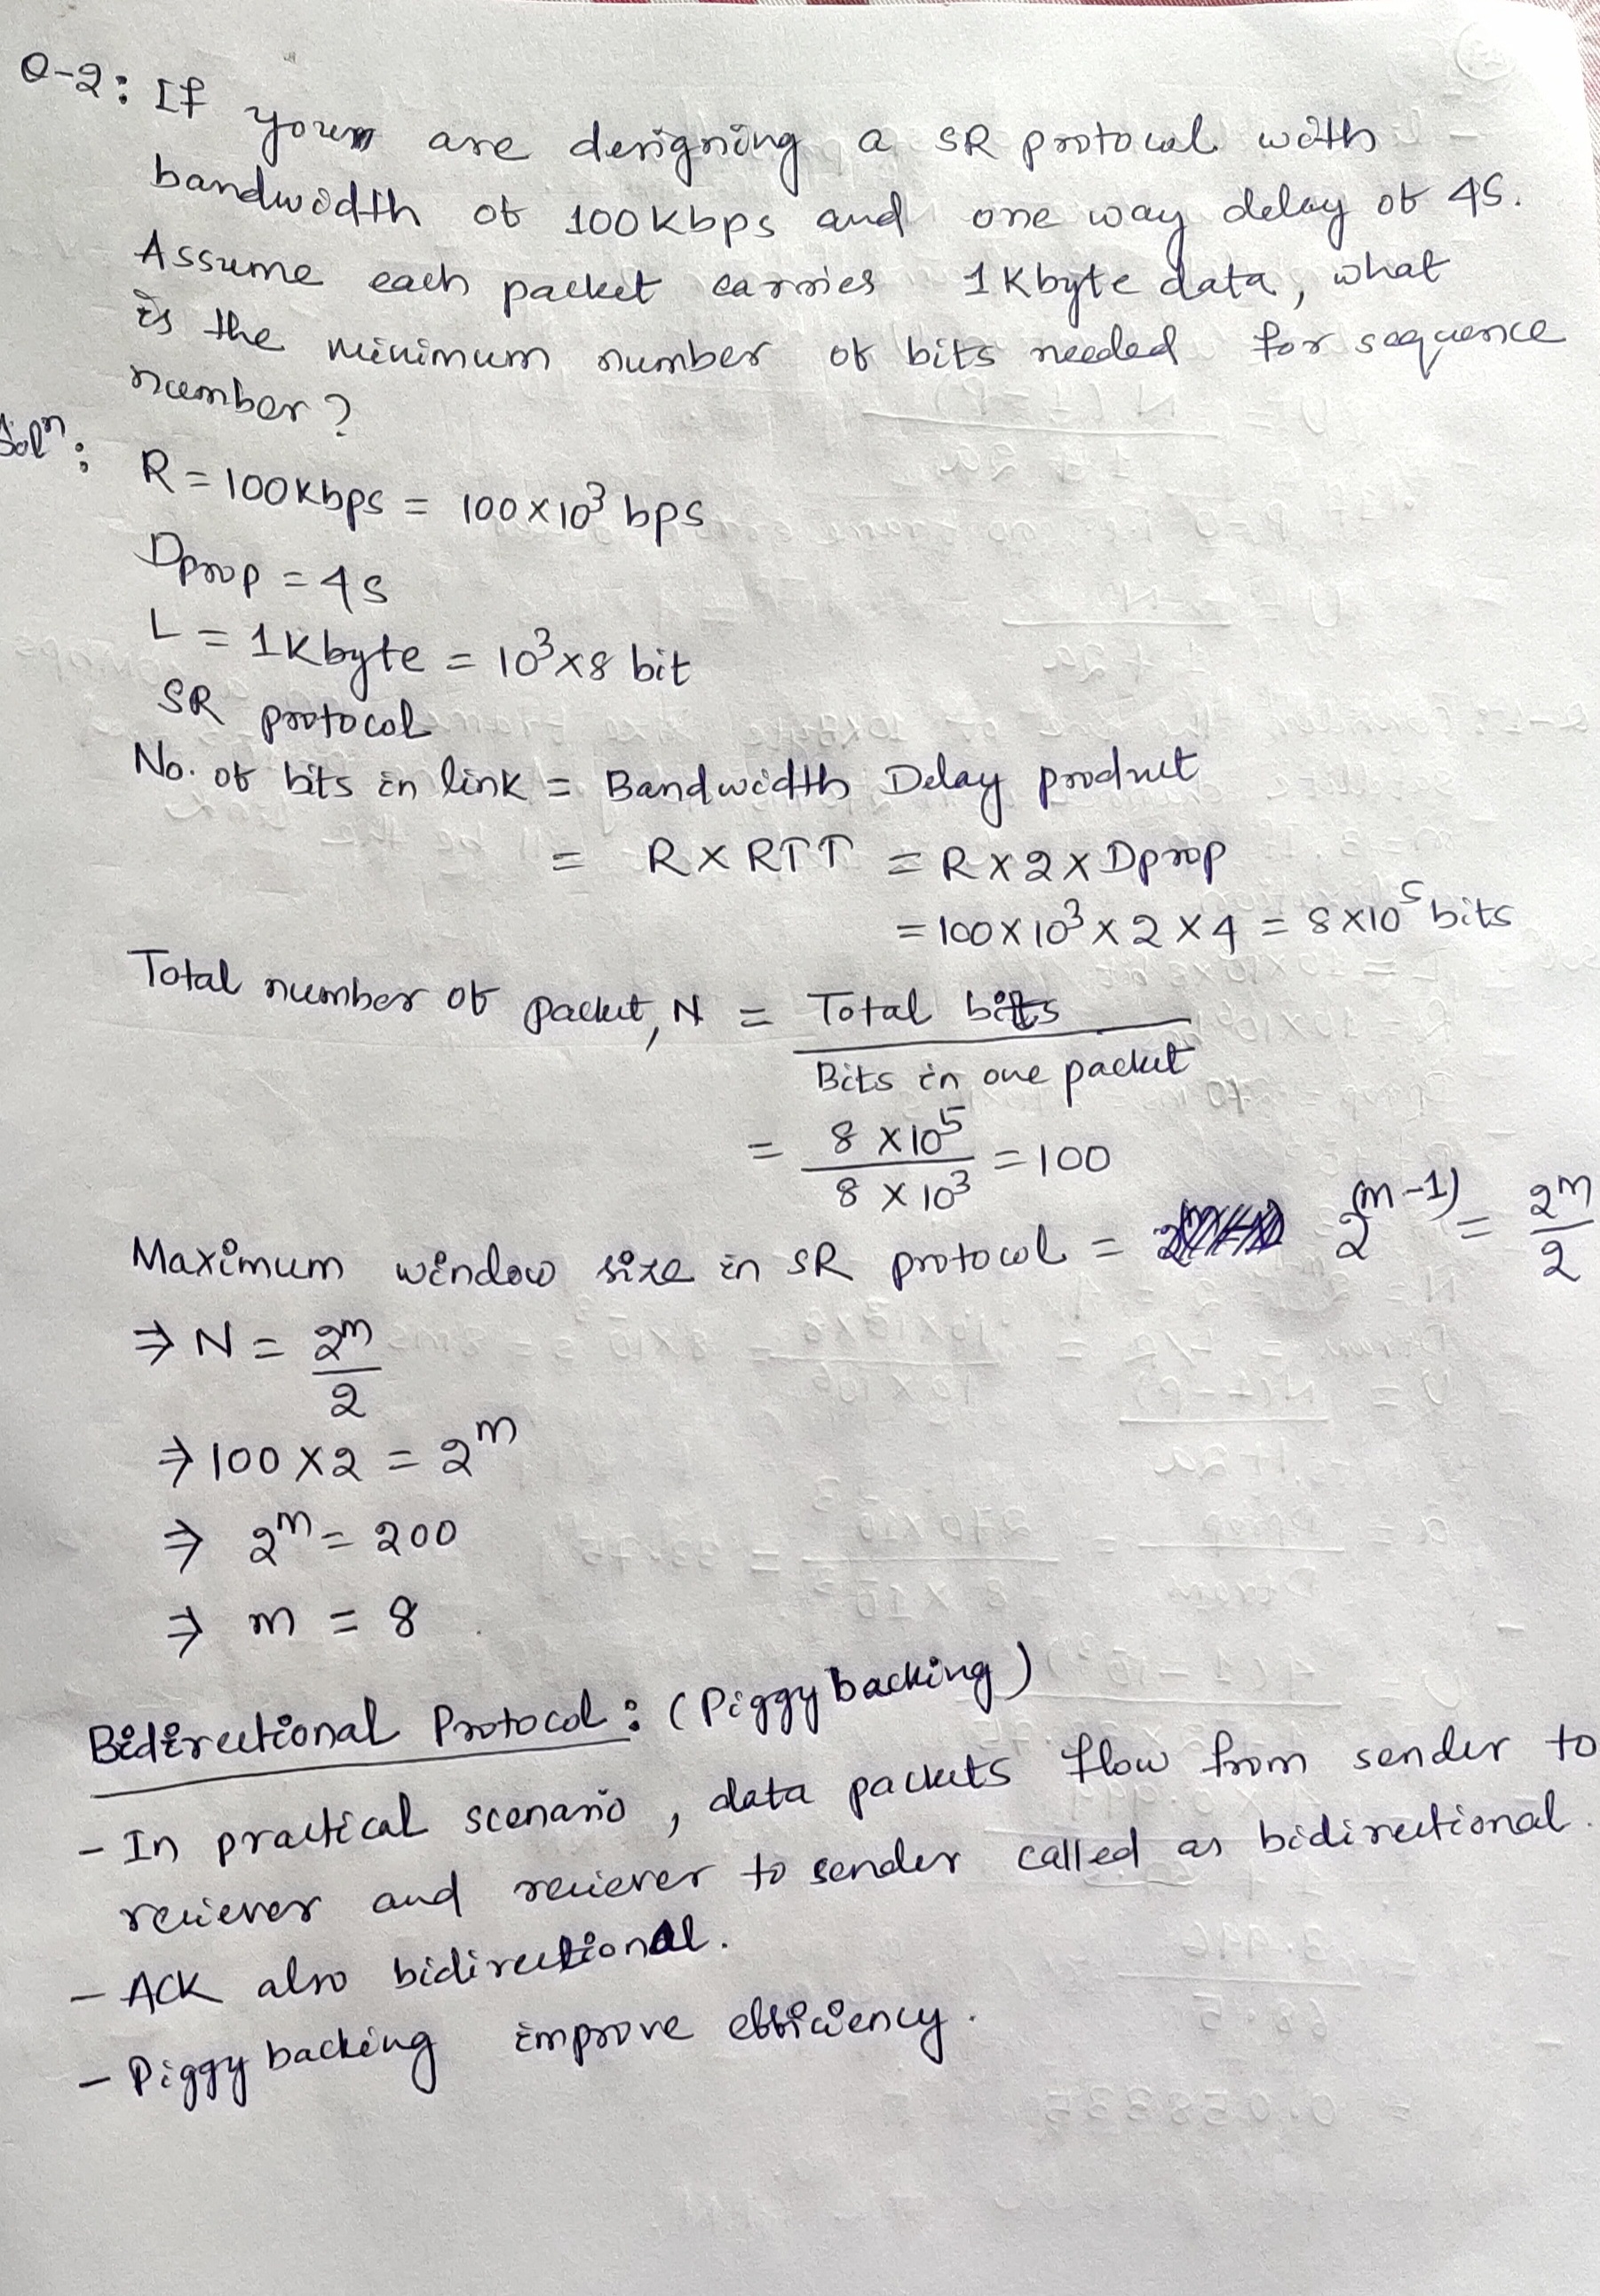 Q-2: If your are designing a SR protocol with
bandwidth of 100kbps and one way delay of 4S.
Assume each packet carries 1Kbyte data, what
is the minimum number of bits needed for sequence
number?
Solⁿ:
R = 100kbps = 100×10³ bps
Dprop = 4s
L = 1Kbyte = 10³×8 bit
SR protocol
No. of bits in link = Bandwidth Delay product
= R×RTT = R×2×Dprop
= 100×10³×2×4 = 8×10⁵ bits
Total number of packet, N = Total bits
Bits in one packet
= 8×10⁵ / 8×10³ = 100
Maximum window size in SR protocol = 2^(m-1) = 2^m / 2
⇒ N = 2^m / 2
⇒ 100×2 = 2^m
⇒ 2^m = 200
⇒ m = 8
Bidirectional Protocol: (Piggybacking)
- In practical scenario, data packets flow from sender to
reciever and reciever to sender called as bidirectional.
- ACK also bidirectional.
- Piggybacking improve efficiency.